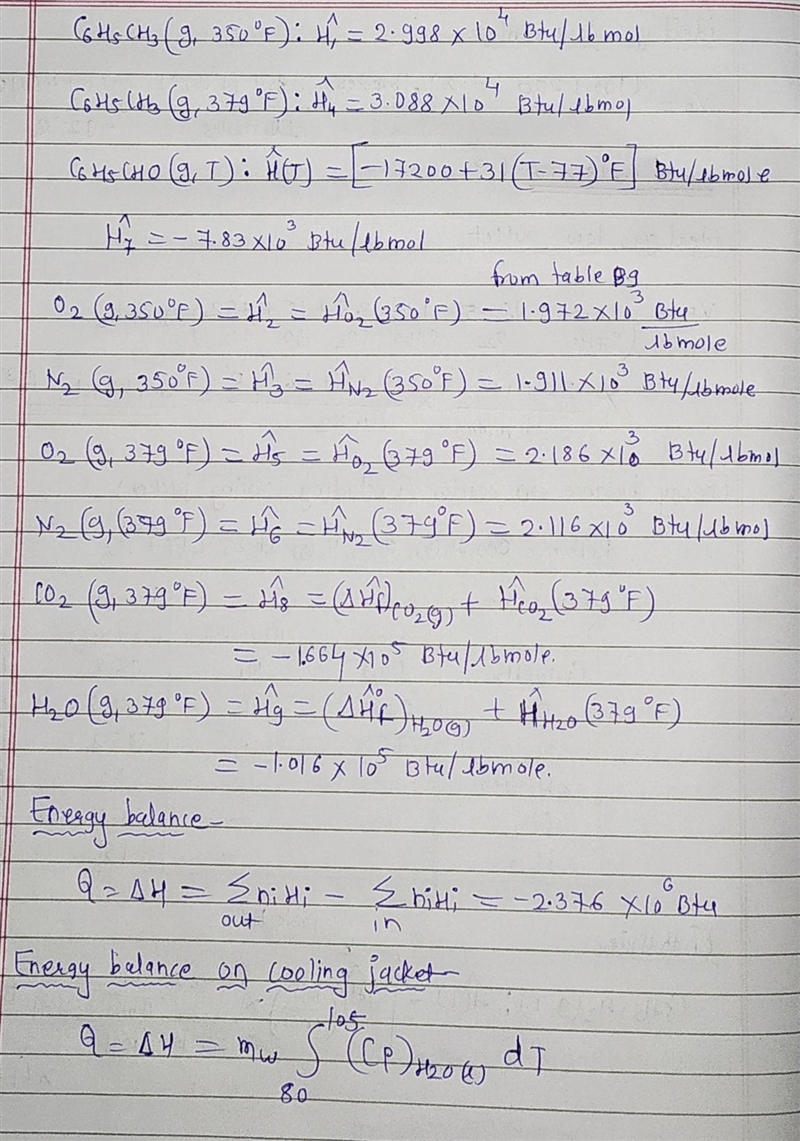 C6H5CH3 (g, 350°F) : Ĥ1 = 2.998 × 10^4 Btu/lb mol
C6H5CH3 (g, 379°F) : Ĥ4 = 3.088 × 10^4 Btu/lbmol
C6H5CHO (g, T) : Ĥ(T) = [-17200 + 31 (T-77)°F] Btu/lbmole
Ĥ7 = -7.83 × 10^3 Btu/lbmol
from table B9
O2 (g, 350°F) = Ĥ2 = ĤO2 (350°F) = 1.972 × 10^3 Btu/lbmole
N2 (g, 350°F) = Ĥ3 = ĤN2 (350°F) = 1.911 × 10^3 Btu/lbmole
O2 (g, 379°F) = Ĥ5 = ĤO2 (379°F) = 2.186 × 10^3 Btu/lbmol
N2 (g, (379°F) = Ĥ6 = ĤN2 (379°F) = 2.116 × 10^3 Btu/lbmol
CO2 (g, 379°F) = Ĥ8 = (ΔĤf)CO2(g) + ĤCO2 (379°F)
= -1.664 × 10^5 Btu/lbmole.
H2O (g, 379°F) = Ĥ9 = (ΔĤ°f)H2O(g) + ĤH2O (379°F)
= -1.016 × 10^5 Btu/lbmole.
Energy balance -
Q = ΔH = Σ niHi - Σ niHi = -2.376 × 10^6 Btu
out in
Energy balance on cooling jacket -
105
Q = ΔH = mw ∫ (Cp)H2O(l) dT
80